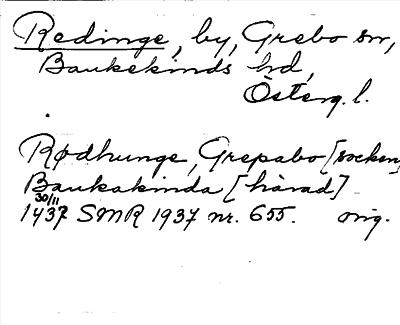 Redinge, by, Grebo sn,
Bankekinds hd,
Österg. l.
Rødhunge, Grepabo [socken,
Bankakinda [härad]
30/11
1437 SMR 1937 nr. 655. orig.